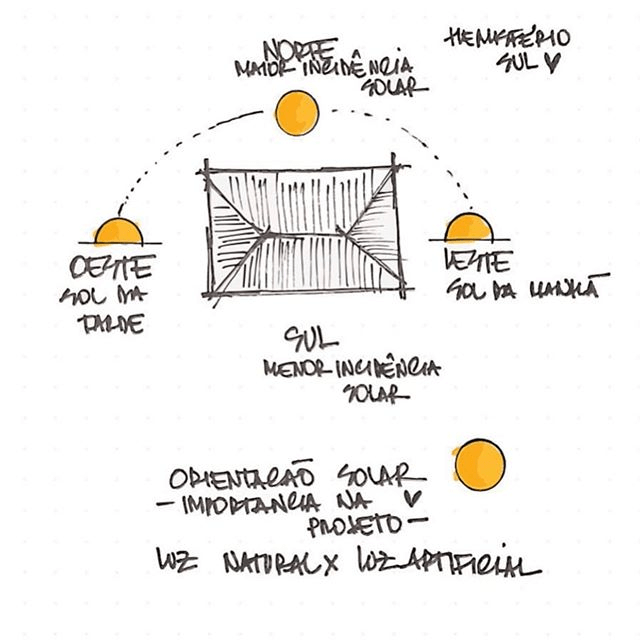 HEMISFÉRIO
SUL
NORTE
MAIOR INCIDÊNCIA
SOLAR
OESTE
SOL DA
TARDE
LESTE
SOL DA MANHÃ
SUL
MENOR INCIDÊNCIA
SOLAR
ORIENTAÇÃO SOLAR
- IMPORTANCIA NA
PROJETO -
LUZ NATURAL X LUZ ARTIFICIAL